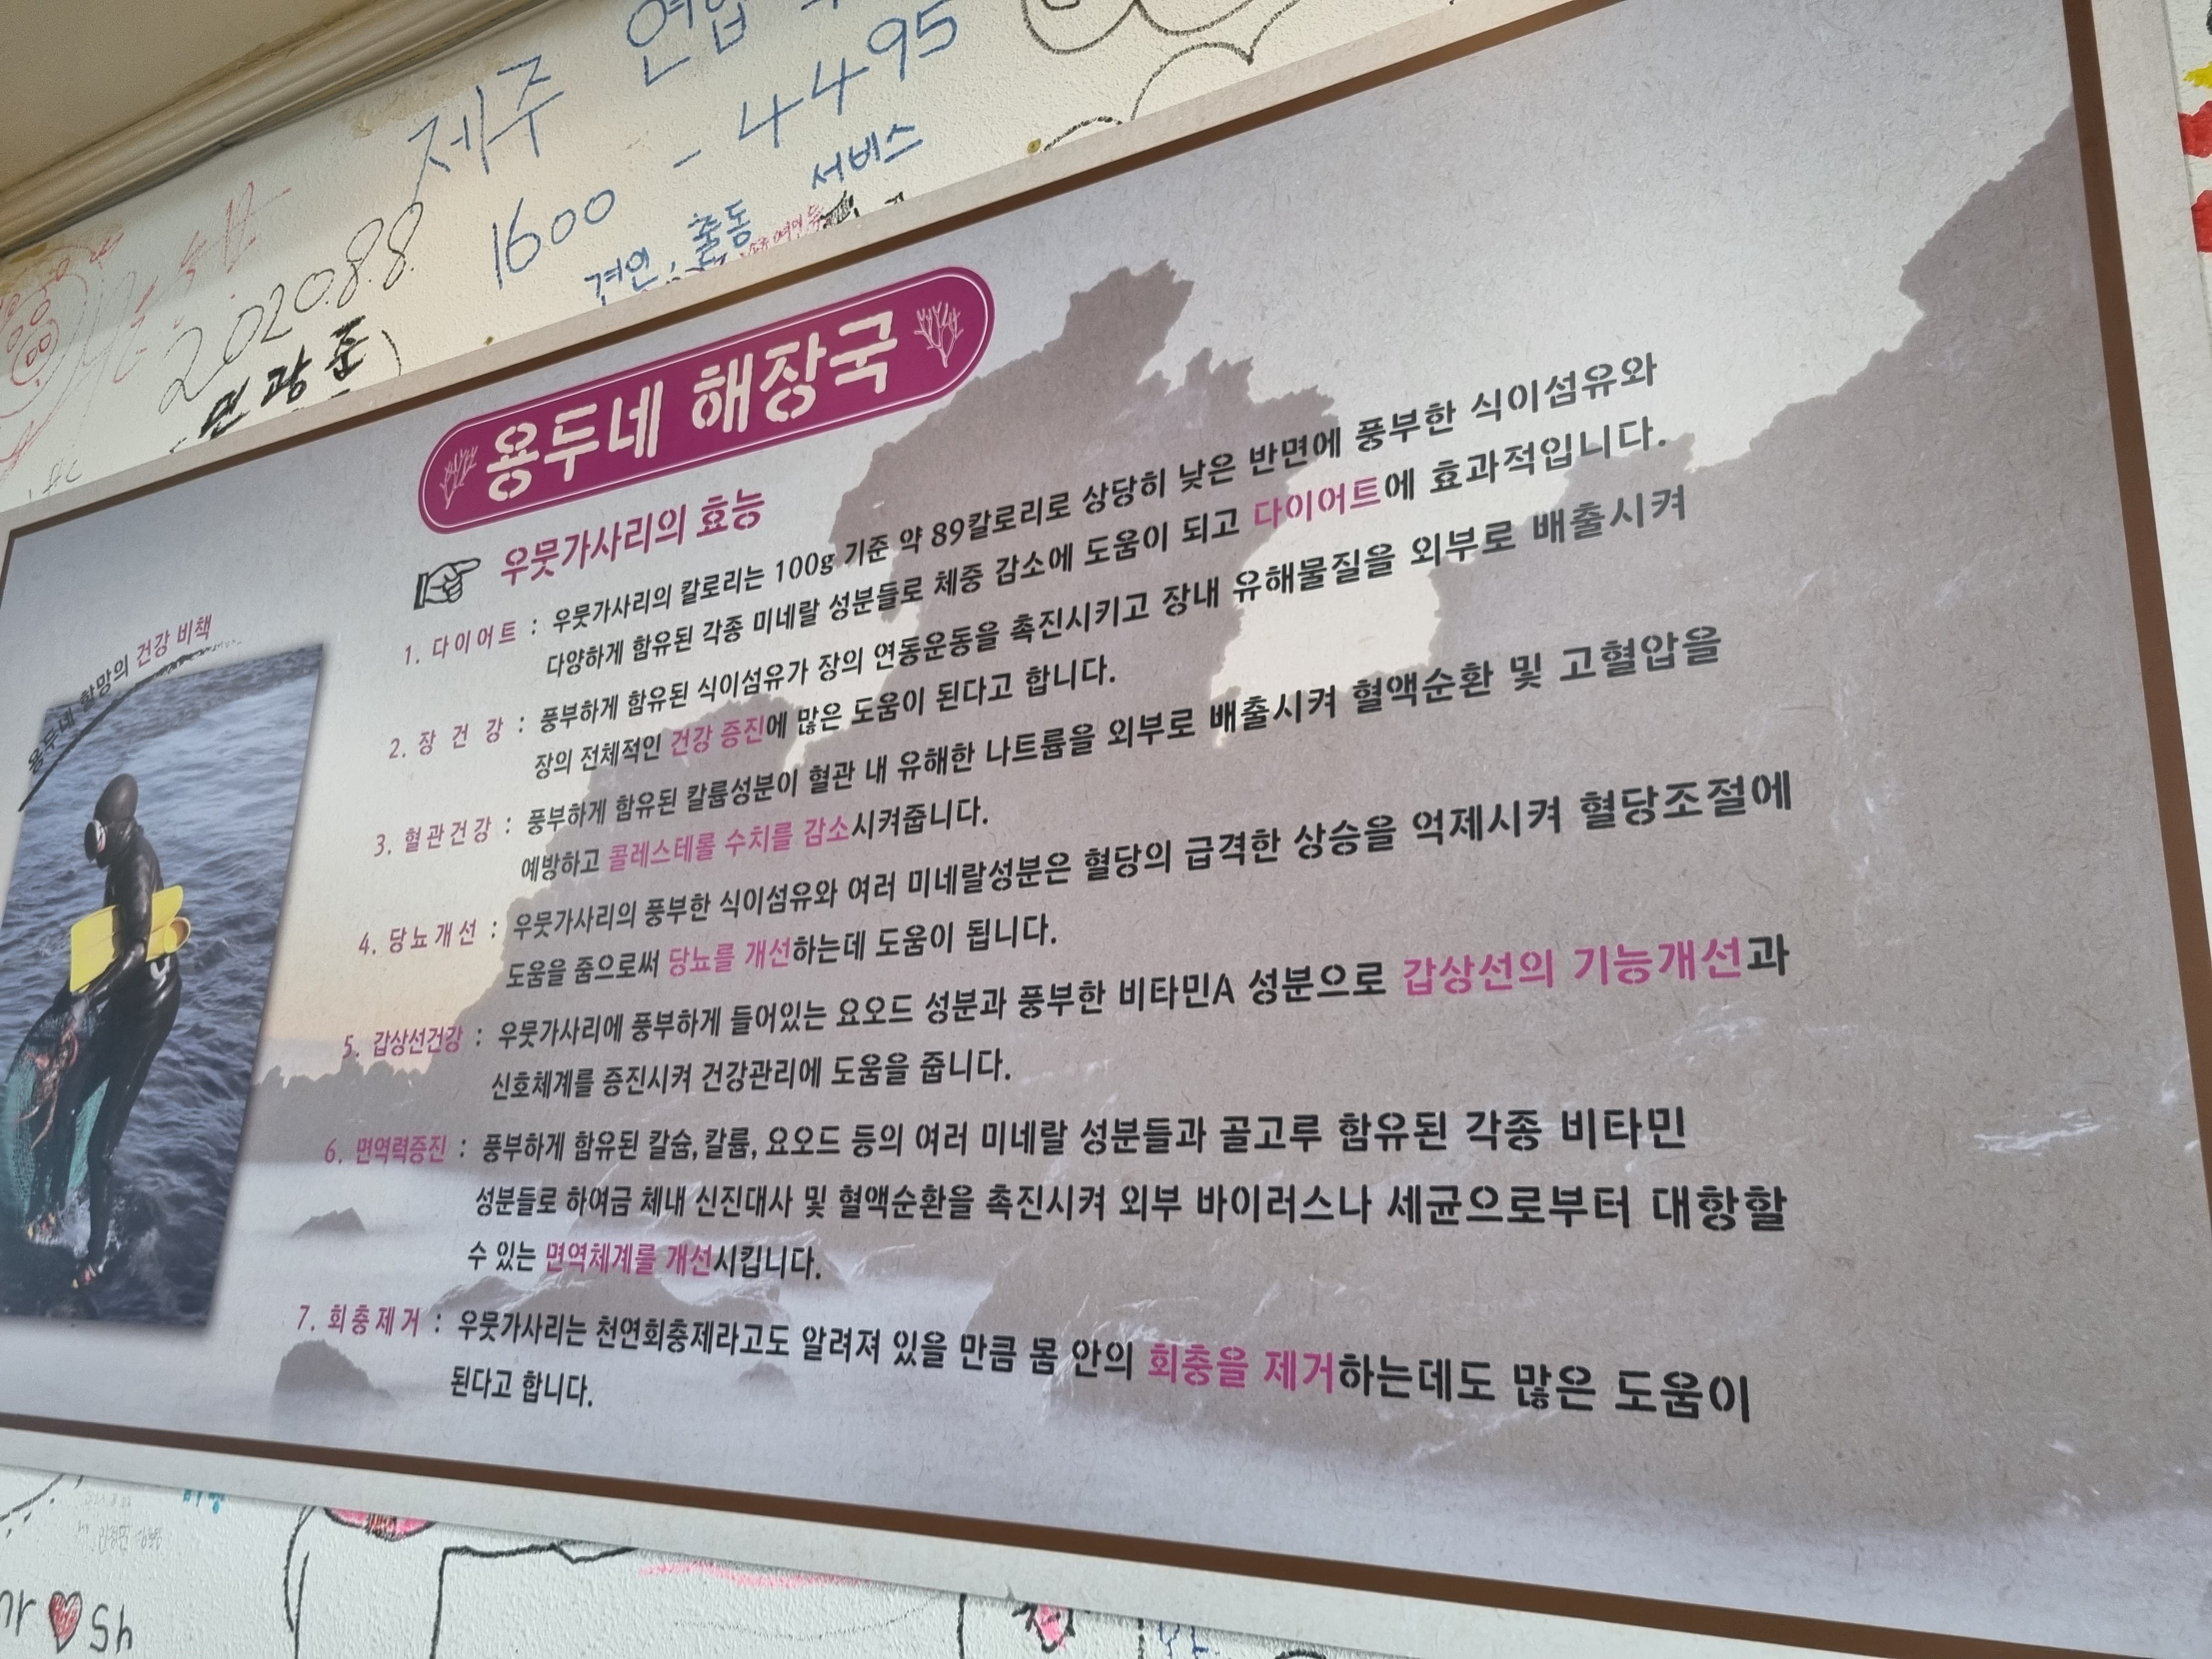 제주
1600 - 4495
서비스
견인, 출동
2020.8.8
용두네 해장국
우뭇가사리의 효능
1. 다이어트 : 우뭇가사리의 칼로리는 100g 기준 약 89칼로리로 상당히 낮은 반면에 풍부한 식이섬유와
다양하게 함유된 각종 미네랄 성분들로 체중 감소에 도움이 되고 다이어트에 효과적입니다.
2. 장 건 강 : 풍부하게 함유된 식이섬유가 장의 연동운동을 촉진시키고 장내 유해물질을 외부로 배출시켜
장의 전체적인 건강 증진에 많은 도움이 된다고 합니다.
3. 혈관건강 : 풍부하게 함유된 칼륨성분이 혈관 내 유해한 나트륨을 외부로 배출시켜 혈액순환 및 고혈압을
예방하고 콜레스테롤 수치를 감소시켜줍니다.
4. 당뇨개선 : 우뭇가사리의 풍부한 식이섬유와 여러 미네랄성분은 혈당의 급격한 상승을 억제시켜 혈당조절에
도움을 줌으로써 당뇨를 개선하는데 도움이 됩니다.
5. 갑상선건강 : 우뭇가사리에 풍부하게 들어있는 요오드 성분과 풍부한 비타민A 성분으로 갑상선의 기능개선과
신호체계를 증진시켜 건강관리에 도움을 줍니다.
6. 면역력증진 : 풍부하게 함유된 칼슘, 칼륨, 요오드 등의 여러 미네랄 성분들과 골고루 함유된 각종 비타민
성분들로 하여금 체내 신진대사 및 혈액순환을 촉진시켜 외부 바이러스나 세균으로부터 대항할
수 있는 면역체계를 개선시킵니다.
7. 회충제거 : 우뭇가사리는 천연회충제라고도 알려져 있을 만큼 몸 안의 회충을 제거하는데도 많은 도움이
된다고 합니다.
용두네 할망의 건강 비책